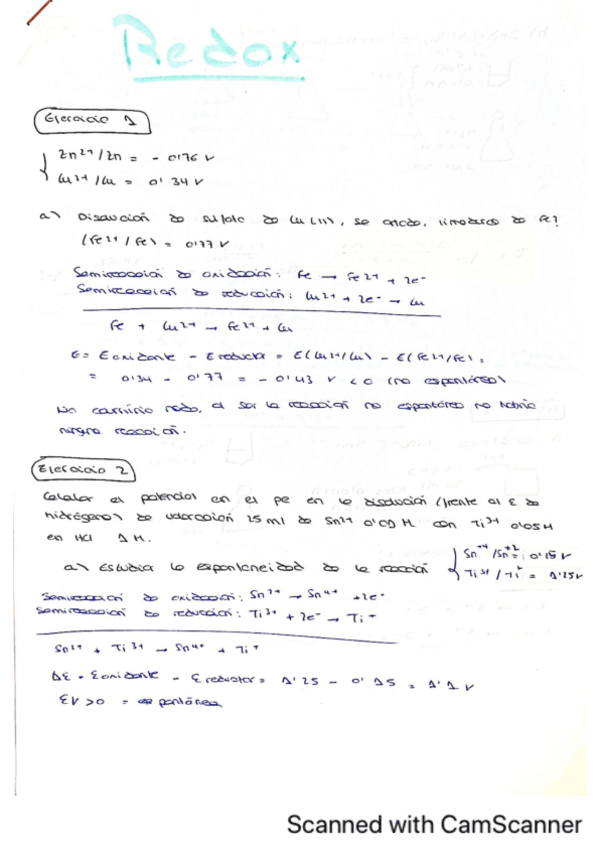 Redox
Ejercicio 1
Zn²⁺/Zn = - 0'76 V
Cu²⁺/Cu = 0'34 V
a) Disolución de sulfato de Cu(II), se añade, limaduras de Fe?
(Fe²⁺/Fe) = 0'77 V
Semirreacción de oxidación: Fe → Fe²⁺ + 2e⁻
Semirreacción de reducción: Cu²⁺ + 2e⁻ → Cu
Fe + Cu²⁺ → Fe²⁺ + Cu
E = E oxidante - E reductor = E(Cu²⁺/Cu) - E(Fe²⁺/Fe) =
= 0'34 - 0'77 = - 0'43 V < 0 (no espontáneo)
No cambiaría nada, al ser la reacción no espontánea no habría
ninguna reacción.
Ejercicio 2
Calcular el potencial en el pe en la disolución (frente al E de
hidrógeno) de valoración 25 ml de Sn²⁺ 0'01 M. con Ti³⁺ 0'05 M
en HCl 1 M.
Sn⁺⁴/Sn⁺² = 0'15 V
a) Estudia la espontaneidad de la reacción
Ti³⁺/Ti⁺ = 1'25 V
Semirreacción de oxidación: Sn²⁺ → Sn⁴⁺ + 2e⁻
Semirreacción de reducción: Ti³⁺ + 2e⁻ → Ti⁺
Sn²⁺ + Ti³⁺ → Sn⁴⁺ + Ti⁺
ΔE = E oxidante - E reductor = 1'25 - 0'15 = 1'1 V
EV > 0 = espontánea
Scanned with CamScanner